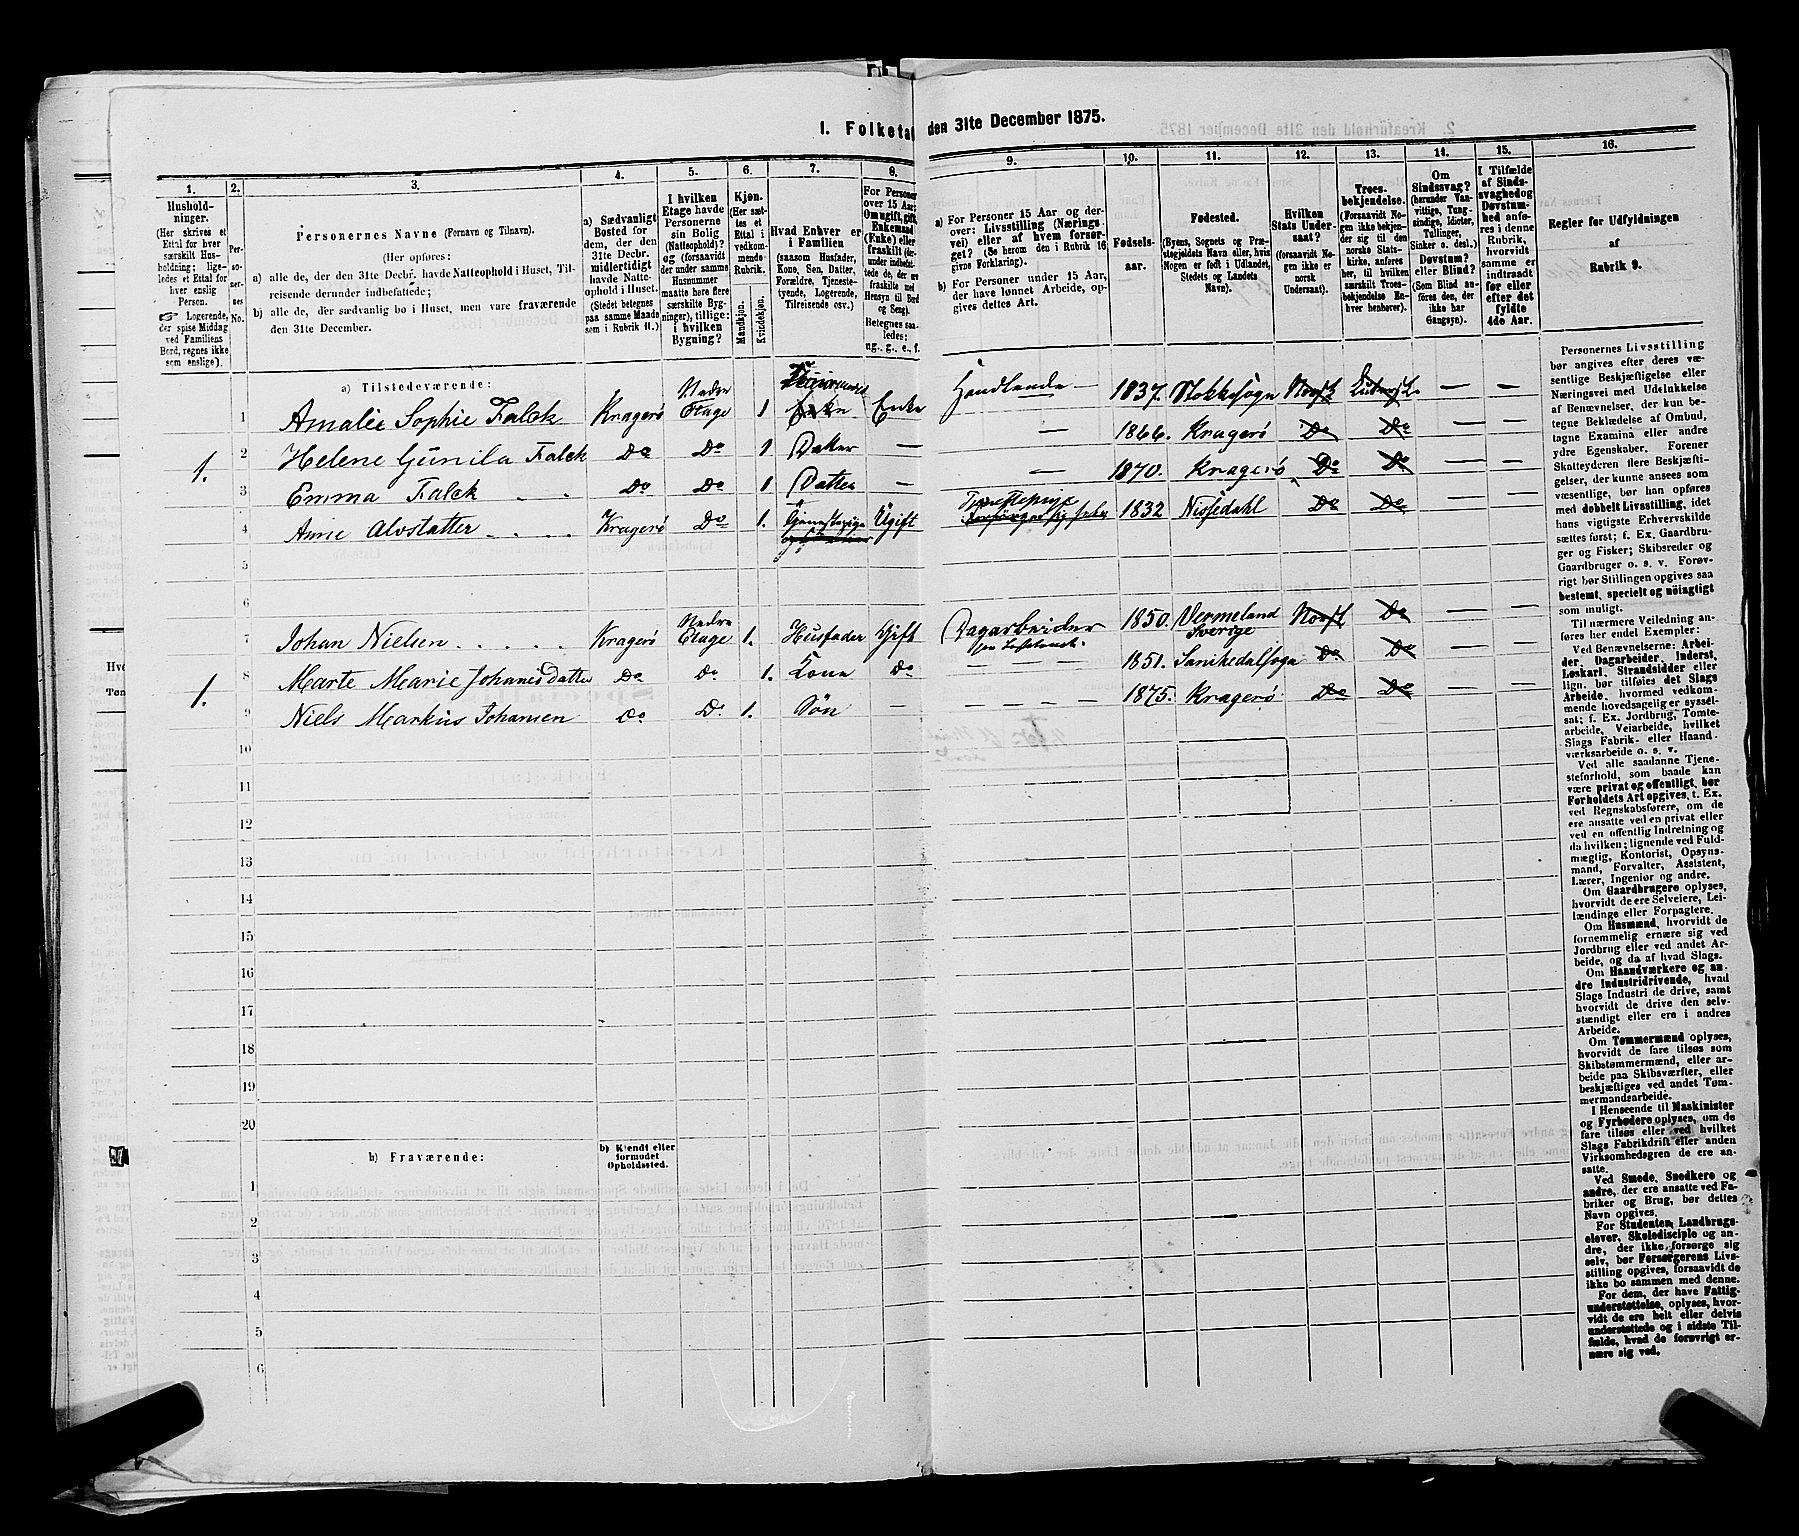 1. Folketal den 31te December 1875.
1. 2. 3. 4. 5. 6. 7. 8. 9. 10. 11. 12. 13. 14. 15. 16.
Hushold-
ninger.
(Her skrives et
Ettal for hver
særskilt Hus-
holdning; lige-
ledes et Ettal for
hver enslig
Person.
☞ Logerende,
der spise Middag
ved Familiens
Bord, regnes ikke
som enslige).
Per-
so-
ner-
nes
No.
Personernes Navne (Fornavn og Tilnavn).
(Her opføres:
a) alle de, der den 31te Decbr. havde Natteophold i Huset, Til-
reisende derunder indbefattede;
b) alle de, der sædvanlig bo i Huset, men vare fraværende
den 31te December.
a) Sædvanligt
Bosted for
dem, der den
31te Decbr.
midlertidigt
havde Natte-
ophold i Huset.
(Stedet betegnes
paa samme Maade
som i Rubrik 11.)
I hvilken
Etage havde
Personerne
sin Bolig
(Natteophold)?
og (forsaavidt
der under samme
Husnummer
maatte høre flere
særskilte Byg-
ninger), tillige:
i hvilken
Bygning?
Kjøn.
(Her sæt-
tes et
Ettal i
vedkom-
mende
Rubrik.
Mandkjøn.
Kvindekjøn.
Hvad Enhver er
i Familien
(saasom Husfader,
Kone, Søn, Datter,
Forældre, Tjeneste-
tyende, Logerende,
Tilreisende osv.)
For Personer
over 15 Aar:
Om ugift, gift,
Enkemand
(Enke) eller
fraskilt
Betegnes saa-
ledes:
ug., g., e., f.
a) For Personer 15 Aar og der-
over: Livsstilling (Nærings-
vei) eller af hvem forsør-
get? (Se herom den i Rubrik 16
givne Forklaring).
b) For Personer under 15 Aar,
der have lønnet Arbeide, op-
gives dettes Art.
Fødsels-
aar.
Fødested.
(Byens, Sognets og Præ-
stegjeldets Navn eller, hvis
Nogen er født i Udlandet,
Stedets og Landets
Navn).
Hvilken
Stats Under-
saat?
(forsaavidt No-
gen ikke er
norsk
Undersaat).
Troes-
bekjendelse.
(Forsaavidt No-
gen ikke bekjen-
der sig til den
norske Stats-
kirke, anføres
her, til hvilken
særskilt Troes-
bekjendelse En-
hver henhører).
Om
Sindssvag?
(herunder Van-
vittige, Tung-
sindige, Idioter,
Tullinger,
Sinker o. desl.)
Døvstum?
eller Blind?
(Som Blind an-
føres den, der
ikke har
Gangsyn).
I Tilfælde
af Sinds-
svaghed og
Døvstum-
hed anfø-
res i denne
Rubrik,
hvorvidt
samme er
indtraadt
før eller
efter det
fyldte
4de Aar.
Regler for Udfyldningen
af
Rubrik 9.
a) Tilstedeværende:
1. 1 Amalie Sophie Falck Kragerø Nedre Etage 1 Enke Enke Handlende — 1837. Stokkesogn Norsk Luthersk — —
2 Helene Gunila Falck Do Do 1 Datter — — 1866. Kragerø Do Do — —
3 Emma Falck Do Do 1 Datter — — 1870. Kragerø Do Do — —
4 Anne Alvstatter Kragerø Do 1. Tjenestepige Ugift 1832 Nissedahl Do Do — —
5
6
1. 7 Johan Nielsen Kragerø Nedre Etage 1. Husfader Gift Dagarbeider 1850. Vermeland Sverige Norsk Do — —
8 Marte Marie Johanesdatter Do Do 1. Kone Do — 1851. Sanikedalsogn Do Do — —
9 Niels Markus Johansen Do Do 1. Søn — — 1875. Kragerø Do Do — —
10
11
12
13
14
15
16
17
18
19
20
b) Fraværende:
b) Kjendt eller
formodet
Opholdssted.
1
2
3
4
5
6
Personernes Livsstilling
bør angives efter deres væ-
sentlige Beskjæftigelse eller
Næringsvei med Udelukkelse
af Benævnelser, der kun be-
tegne Beklædelse af Ombud,
tagne Examina eller andre
ydre Egenskaber. Forener
Skatteyderen flere Beskjæfti-
gelser, der kunne ansees som
væsentlige, bør han opføres
med dobbelt Livsstilling, idet
hans vigtigste Erhvervskilde
sættes først; f. Ex. Gaardbru-
ger og Fisker; Skibsreder og
Gaardbruger o. s. v. Forøv-
rigt bør Stillingen opgives saa
bestemt, specielt og nøiagtigt
som muligt.
Til nærmere Veiledning an-
føres her endel Exempler:
Ved Benævnelserne: Arbei-
der, Dagarbeider, Inderst,
Løskarl, Strandsidder eller
lign. bør tilføies det Slags
Arbeide, hvormed vedkom-
mende hovedsagelig er syssel-
sat; f. Ex. Jordbrug, Tomte-
arbeide, Veiarbeide, hvilket
Slags Fabrik- eller Haand-
værksarbeide o. s. v.
Ved alle saadanne Tjene-
steforhold, som baade kan
være privat og offentligt, bør
Forholdets Art opgives, t. Ex.
ved Regnskabsførere, om de
ere ansatte ved en privat eller
ved en offentlig Indretning og
da hvilken; lignende ved Fuld-
mægtig, Kontorist, Opsyns-
mand, Forvalter, Assistent,
Lærer, Ingeniør og andre.
Om Gaardbrugere oplyses,
hvorvidt de ere Selveiere, Lei-
lændinge eller Forpagtere.
Om Husmænd, hvorvidt de
fornemmelig ernære sig ved
Jordbrug eller ved andet Ar-
beide, og da af hvad Slags.
Om Haandværkere og an-
dre Industridrivende, hvad
Slags Industri de drive, samt
hvorvidt de drive den selv-
stændigt eller ere i andres
Arbeide.
Om Tømmermænd oplyses,
hvorvidt de fare tilsøs som
Skibstømmermænd, eller ar-
beide paa Skibsværfter, eller
beskjæftiges ved andet Tøm-
mermandsarbeide.
I Henseende til Maskinister
og Fyrbødere oplyses, om de
fare tilsøs eller ved hvilket
Slags Fabrikdrift eller anden
Virksomhedsgren de ere an-
satte.
Ved Smede, Snedkere og
andre, der ere ansatte ved Fa-
briker og Brug, bør dettes
Navn opgives.
For Studenter, Landbrugs-
elever, Skoledisciple og an-
dre, der ikke forsørge sig
selv, bør Forsørgerens Livs-
stilling opgives, forsaavidt de
ikke bo sammen med denne.
For dem, der have Fattig-
understøttelse, oplyses, hvor-
vidt de ere helt eller delvis
understøttede og i sidste Til-
fælde, hvad de forøvrigt er-
nære sig ved.